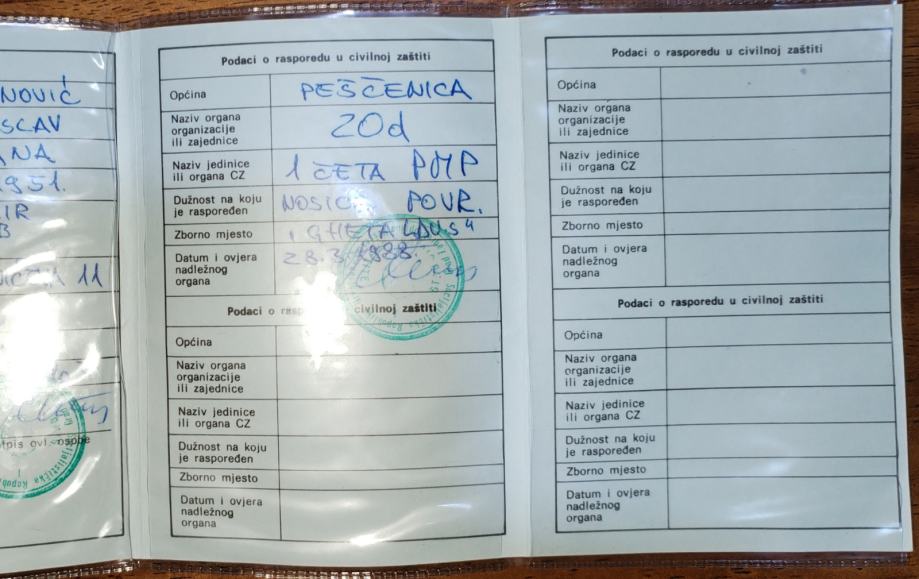 NOVIĆ
SCAV
ANA
951.
IR
B
11
Podaci o rasporedu u civilnoj zaštiti
Općina PEŠČENICA
Naziv organa
organizacije
ili zajednice
ZOd
Naziv jedinice
ili organa CZ
1 ČETA PMP
Dužnost na koju
je raspoređen
NOSIČ POVR.
Zborno mjesto
Datum i ovjera
nadležnog
organa
28.3.1988.
Podaci o rasporedu u civilnoj zaštiti
Općina
Naziv organa
organizacije
ili zajednice
Naziv jedinice
ili organa CZ
Dužnost na koju
je raspoređen
Zborno mjesto
Datum i ovjera
nadležnog
organa
Podaci o rasporedu u civilnoj zaštiti
Općina
Naziv organa
organizacije
ili zajednice
Naziv jedinice
ili organa CZ
Dužnost na koju
je raspoređen
Zborno mjesto
Datum i ovjera
nadležnog
organa
Podaci o rasporedu u civilnoj zaštiti
Općina
Naziv organa
organizacije
ili zajednice
Naziv jedinice
ili organa CZ
Dužnost na koju
je raspoređen
Zborno mjesto
Datum i ovjera
nadležnog
organa